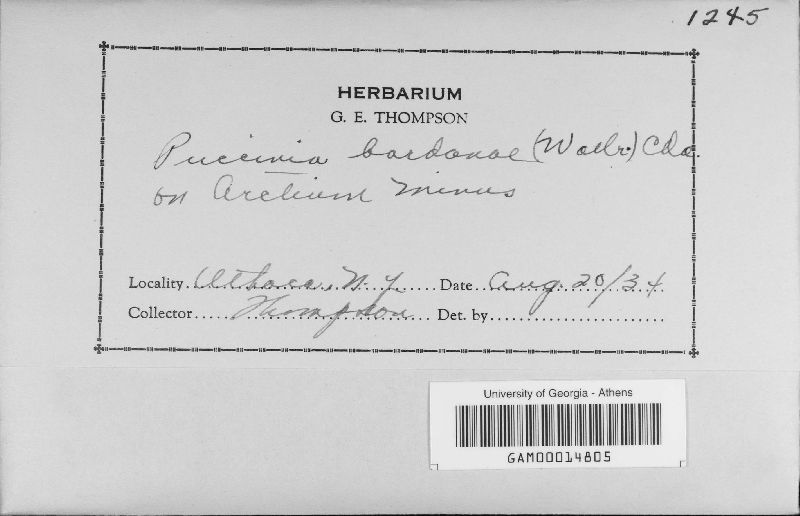 1245
HERBARIUM
G. E. THOMPSON
Puccinia bardanae (Wallr.) Cda.
on Arctium minus
Locality Ithaca, N.Y. Date Aug. 20/34
Collector Thompson Det. by
University of Georgia - Athens
GAM00014805